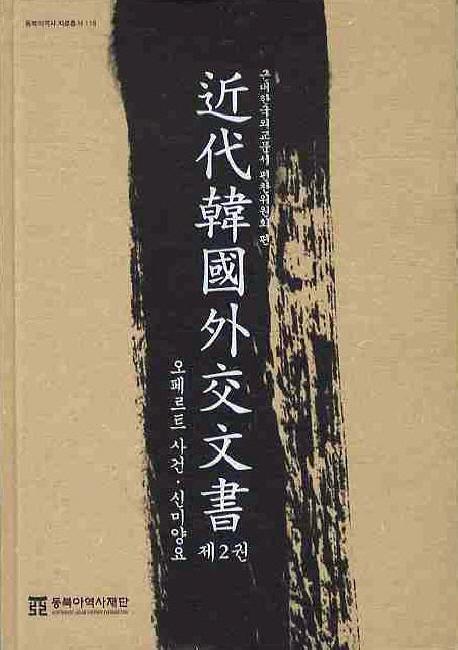 동북아역사 자료총서 118
근대한국외교문서 편찬위원회 편
近代韓國外交文書
제2권
오페르트 사건·신미양요
동북아역사재단
NORTHEAST ASIAN HISTORY FOUNDATION